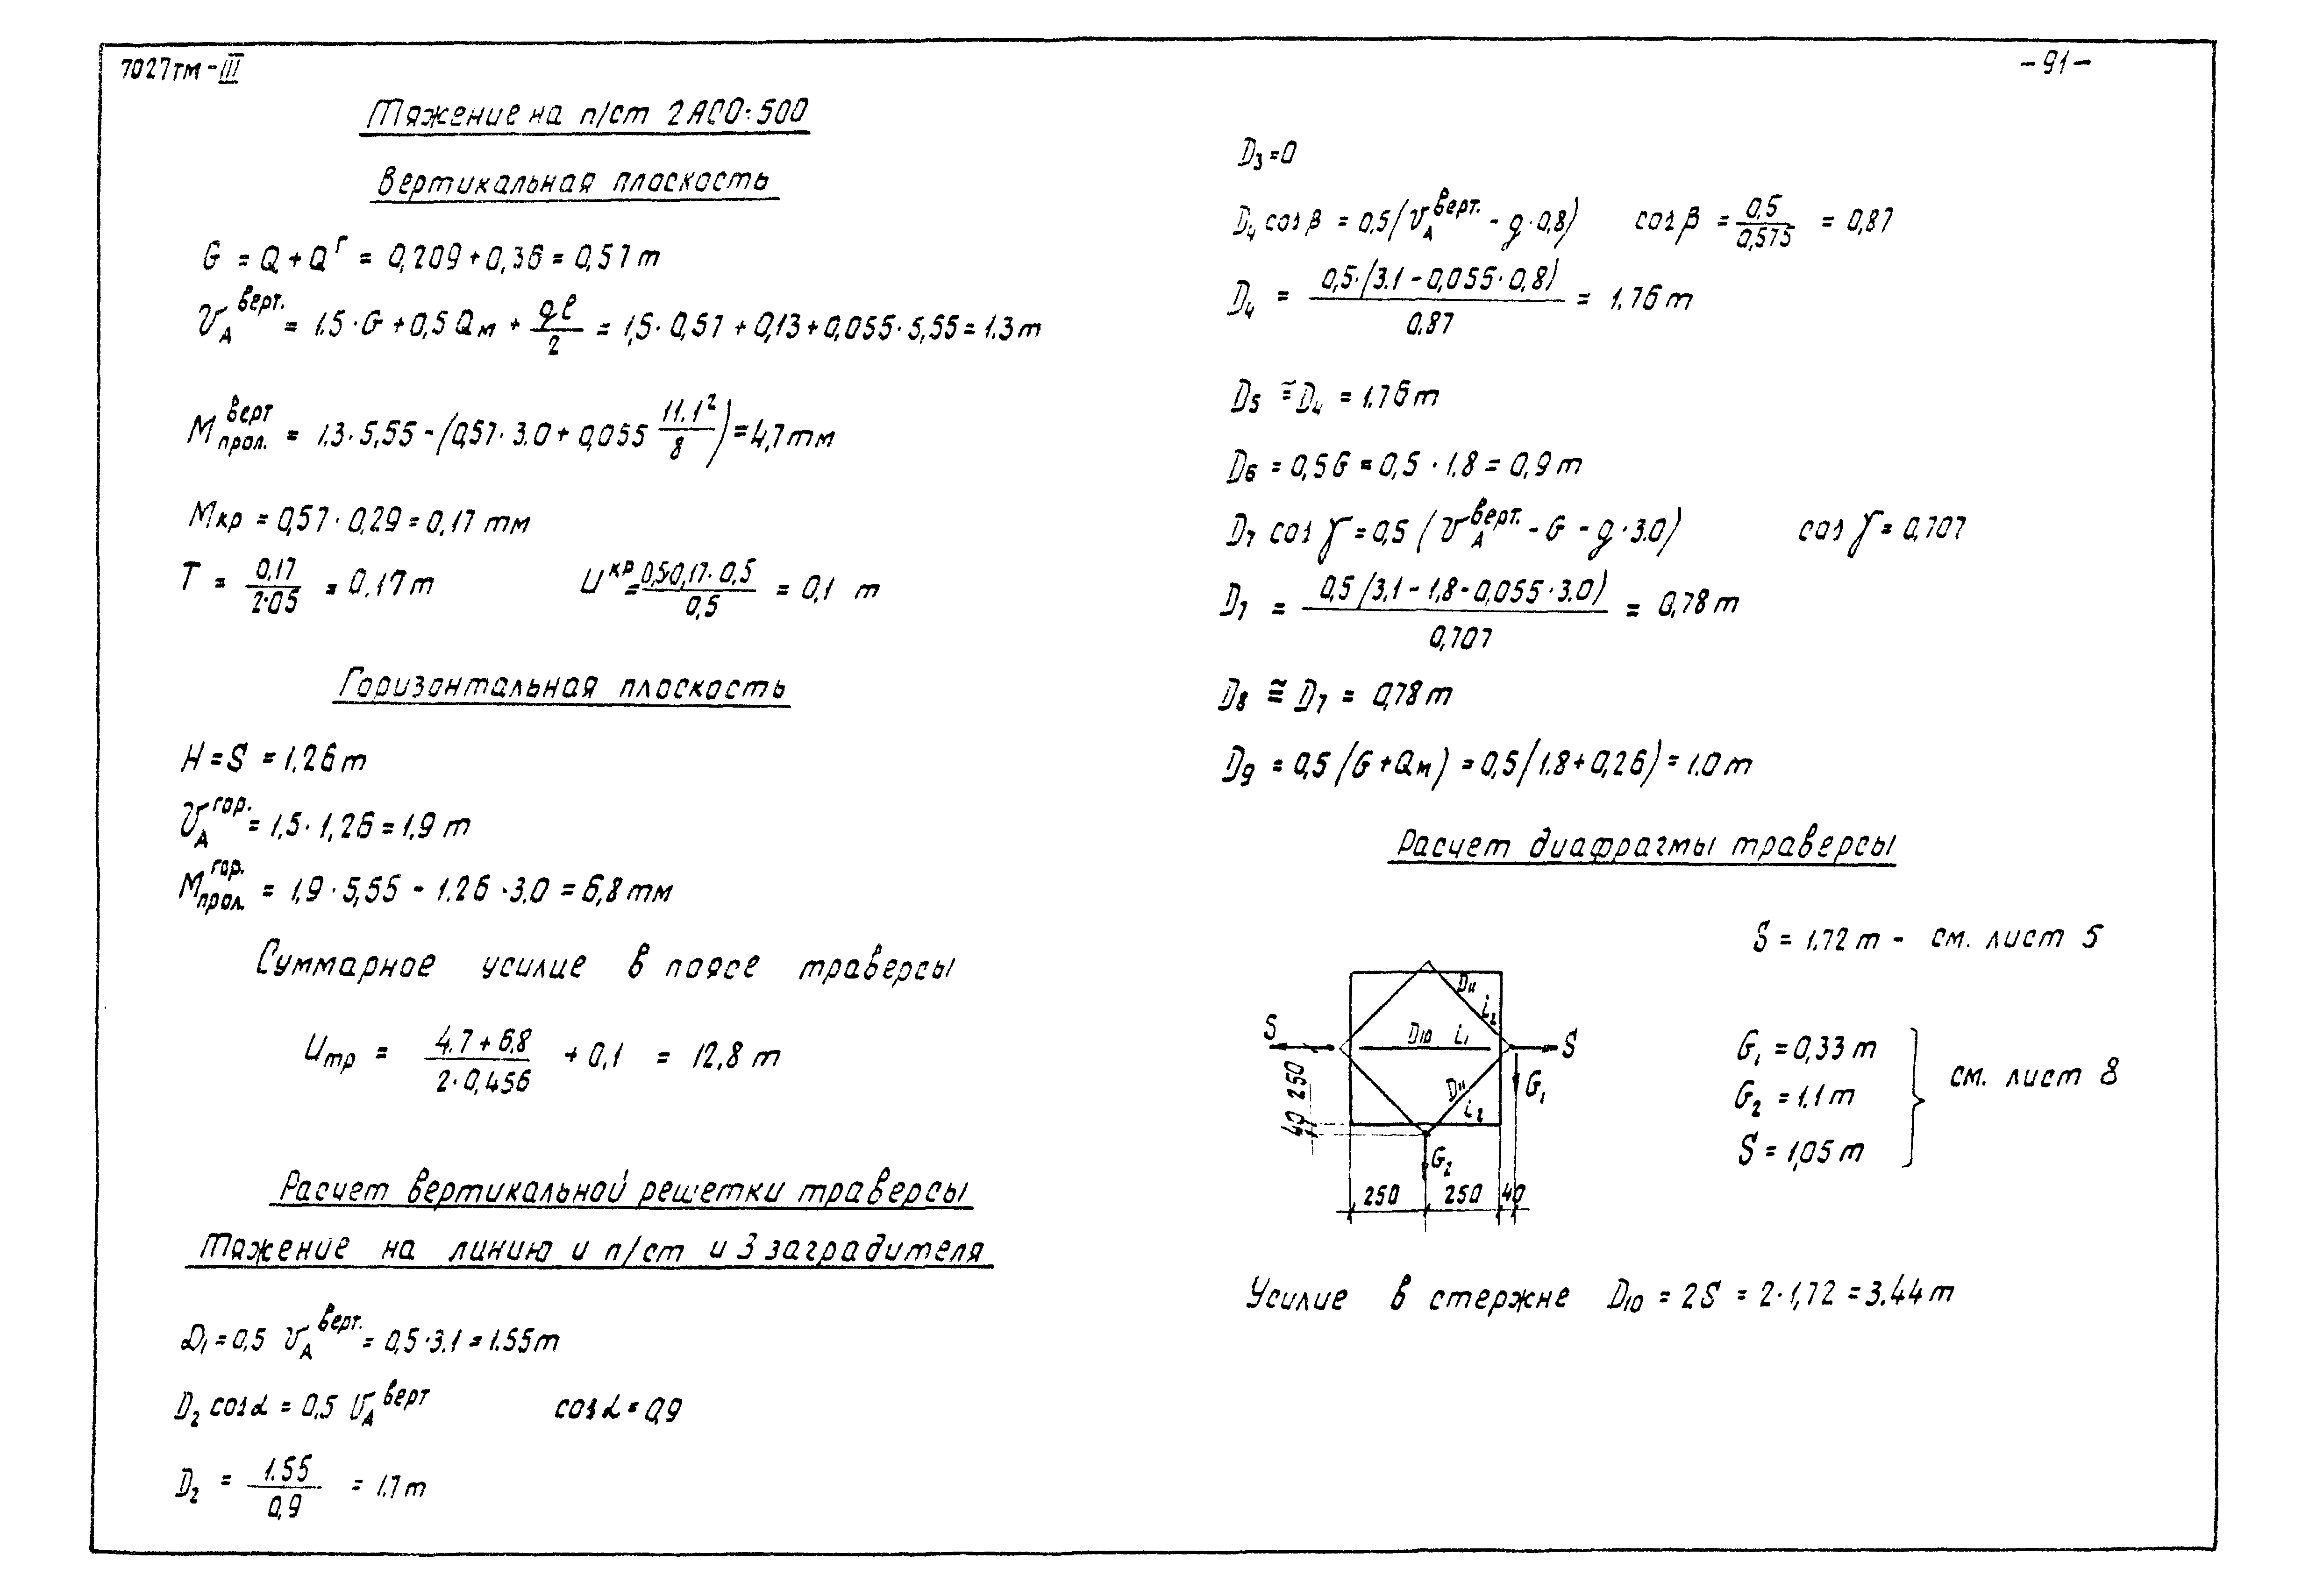 7027тм-III
-91-
Тяжение на п/ст 2АСО-500
Вертикальная плоскость
G = Q + Qᴦ = 0,209 + 0,36 = 0,57 т
V_A^верт. = 1.5 · G + 0,5 Qм + qℓ/2 = 1,5 · 0,57 + 0,13 + 0,055 · 5,55 = 1.3 т
M_прол.^верт = 1.3 · 5,55 - (0,57 · 3.0 + 0,055 11.1²/8) = 4,7 тм
Mкр = 0,57 · 0,29 = 0,17 тм
T = 0,17/2·05 = 0,17 т U^кр = 0,5·0,17·0,5/0,5 = 0,1 т
Горизонтальная плоскость
H = S = 1.26 т
V_A^гор. = 1,5 · 1,26 = 1.9 т
M_прол.^гор. = 1,9 · 5,55 - 1.26 · 3.0 = 6,8 тм
Суммарное усилие в поясе траверсы
Uтр = 4.7 + 6.8/2·0,456 + 0,1 = 12,8 т
Расчет вертикальной решетки траверсы
Тяжение на линию и п/ст и 3 заградителя
D₁ = 0,5 V_A^верт. = 0,5 · 3.1 = 1.55 т
D₂ cos α = 0.5 V_A^верт cos α = 0,9
D₂ = 1.55/0,9 = 1.7 т
D₃ = 0
D₄ cos β = 0,5 (V_A^верт. - g · 0,8) cos β = 0,5/0,575 = 0,87
D₄ = 0,5·(3.1 - 0,055 · 0,8)/0.87 = 1.76 т
D₅ ≅ D₄ = 1.76 т
D₆ = 0,5G = 0,5 · 1.8 = 0,9 т
D₇ cos γ = 0,5 (V_A^верт. - G - g · 3.0) cos γ = 0,707
D₇ = 0,5 (3.1 - 1,8 - 0,055 · 3.0)/0,707 = 0,78 т
D₈ ≅ D₇ = 0,78 т
D₉ = 0,5 (G + Qм) = 0,5 (1.8 + 0,26) = 1.0 т
Расчет диафрагмы траверсы
S = 1.72 т - см. лист 5
D₁₁
L₂
S
D₁₀ L₁
S
G₁ = 0,33 т
G₂ = 1.1 т
S = 1,05 т
см. лист 8
D₁₁
L₂
G₁
250
40
G₂
250 250 40
Усилие в стержне D₁₀ = 2S = 2 · 1,72 = 3.44 т